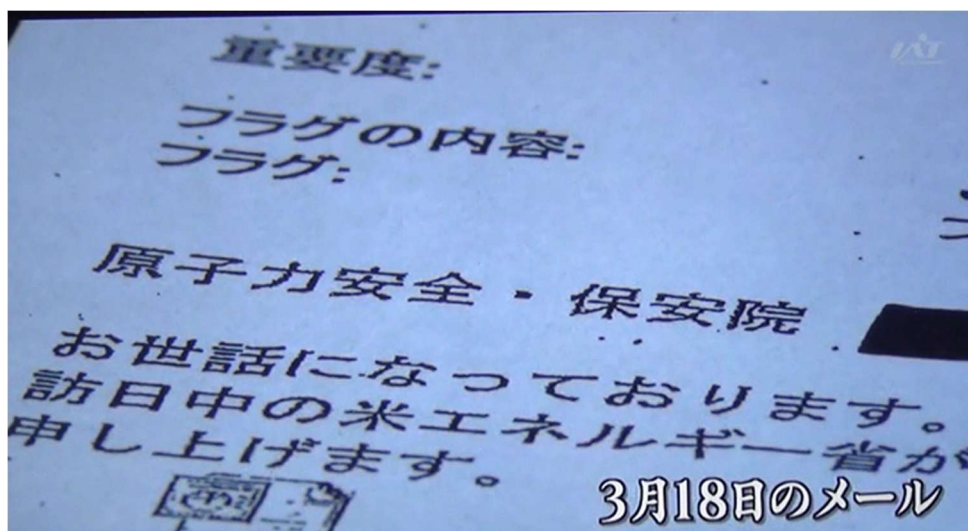 重要度:
フラグの内容:
フラグ:
原子力安全・保安院
お世話になっております。
訪日中の米エネルギー省が
申し上げます。
3月18日のメール